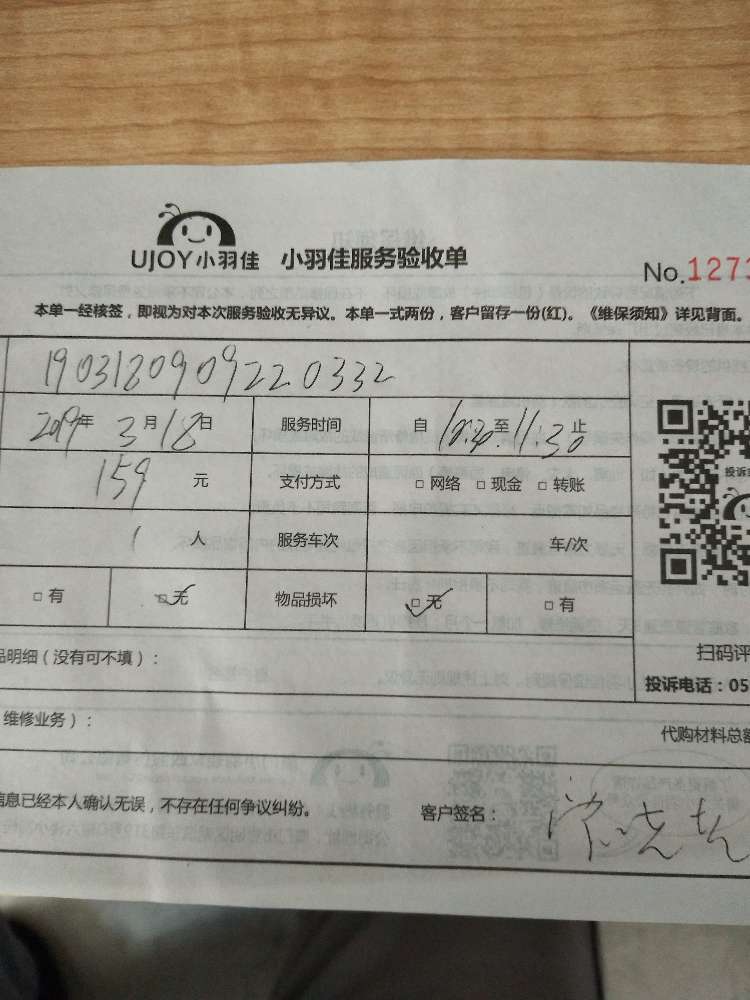 UJOY小羽佳 小羽佳服务验收单
No.1273
本单一经核签，即视为对本次服务验收无异议。本单一式两份，客户留存一份(红)。《维保须知》详见背面。
1903180909220332
2019年 3月18日 服务时间 自 10:30至11:30止
159 元 支付方式 □ 网络 □ 现金 □ 转账
1 人 服务车次 车/次
□ 有 □ 无 物品损坏 □ 无 □ 有
投诉
扫码评
品明细（没有可不填）：
投诉电话：05
维修业务）：
代购材料总额
信息已经本人确认无误，不存在任何争议纠纷。 客户签名：